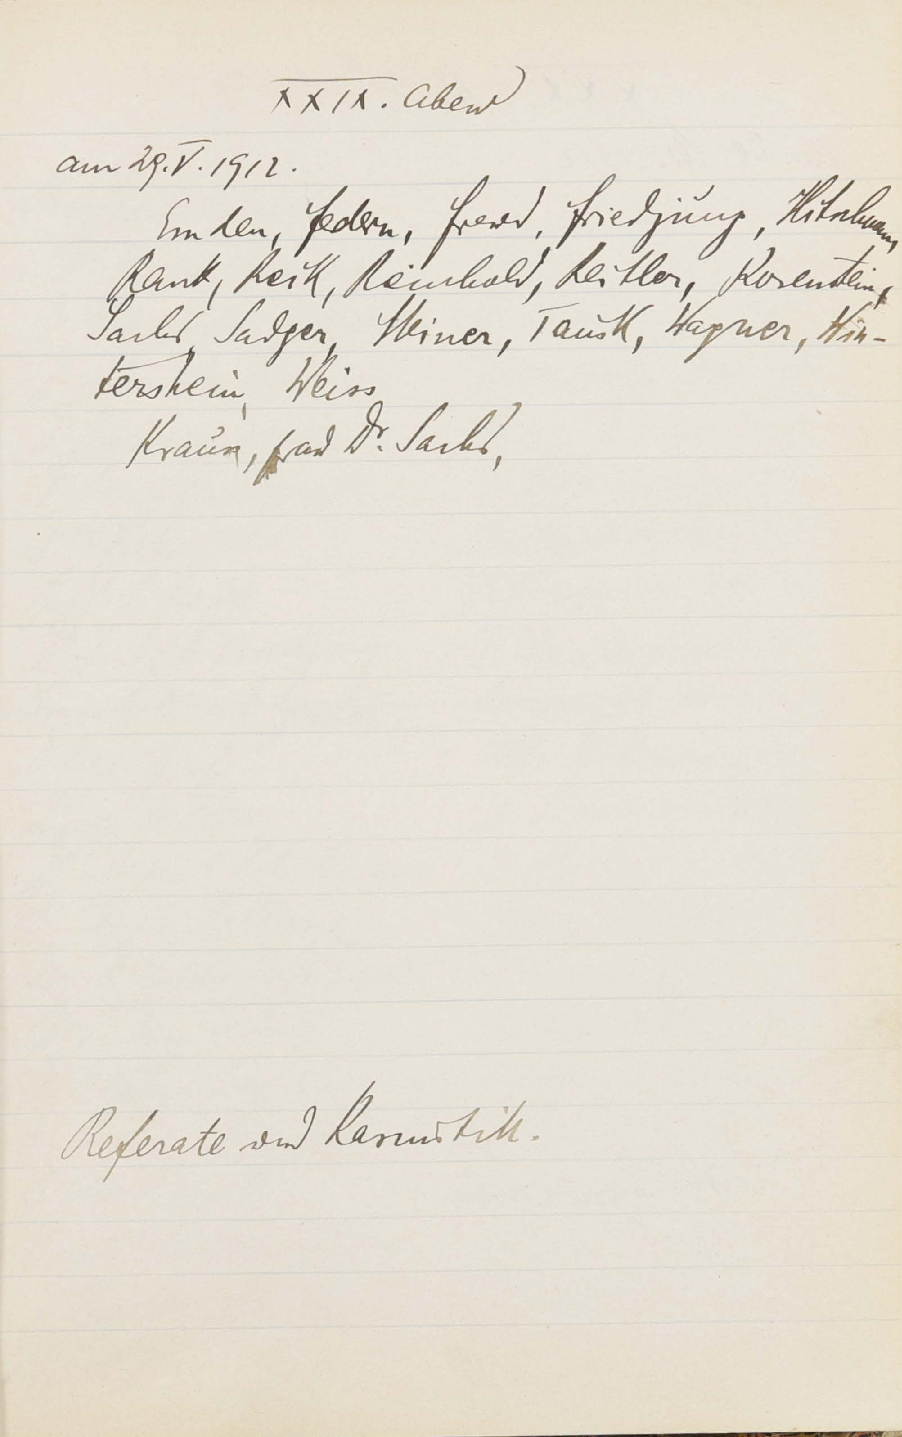 XXIX. Abend
am 29.V.1912.
Emden, Federn, Freud, Friedjung, Hitschmann,
Rank, Reik, Reinhold, Reitler, Rosenstein,
Sachs, Sadger, Steiner, Tausk, Wagner, Win-
terstein, Weiss
Kraus, Frau Dr. Sachs,
Referate und Kasuistik.